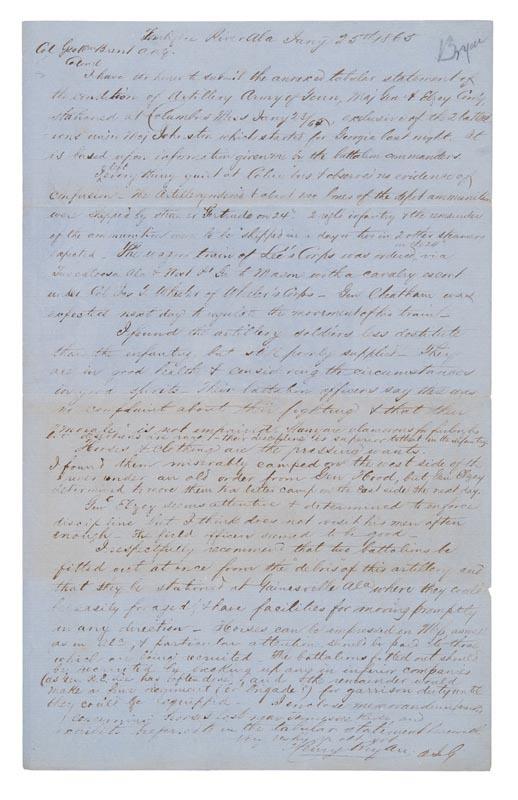 Tombigbee River Ala Jany 25th 1865
Bryan
Col Geo Wm Brent A A G
Colonel
I have the honor to submit the annexed tabular statement of
the condition of Artillery Army of Tenn, Maj Gen A Elzey Com'g,
stationed at Columbus Miss Jany 23/65 exclusive of the 2 batteries
under Maj Johnston which started for Georgia last night. It
is based upon information given me by the battalion commanders
I found everything quiet at Columbus & observed no evidence of
confusion. The Artillery & about two of the depot ammunition
were shipped by steamer Gertrude on 24th 2 regts infantry & the remainder
of the ammunition were to be shipped in a day or two in 2 other steamers
expected. The wagon train of Lee's Corps was ordered via
Tuscaloosa Ala & West Pt Ga to Macon with a cavalry escort
under Col Jas T. Wheeler of Wheeler's Corps. Gen Cheatham was
expected next day to regulate the movement of his train
I found the artillery soldiers less destitute
than the infantry, but still poorly supplied. They
are in good health & considering the circumstances
in good spirits. Their battalion officers say there was
no complaint about their fighting & that their
"morale" is not impaired. Many are clamorous for furloughs
but desertions are rare - their discipline is superior to that in the infantry
Horses & Clothing are the pressing wants.
I found them miserably camped on the west side of the
river under an old order from Gen Hood, but Gen Elzey
determined to move them to a better camp on the east side the next day.
Gen Elzey seems attentive & determined to enforce
discipline but I think does not visit his men often
enough. The field officers seemed to be good
I respectfully recommend that two battalions be
fitted out at once from the "debris of this artillery and
that they be stationed at Gainesville Ala where they could
be easily foraged & have facilities for moving promptly
in any direction. Horses can be impressed in Miss as well
as in Ala, & particular attention should be paid to those
which are being recruited. The battalions fitted out should
be recruited by breaking up any inefficient companies
(as Gen R E Lee has often done) and the remainder would
make a fine regiment (or brigade?) for garrison duty until
they could be equipped. I enclose memorandum
concerning horses lost near and
in the tabular statement herewith
Very resply yr obt svt
Henry Bryan A I G